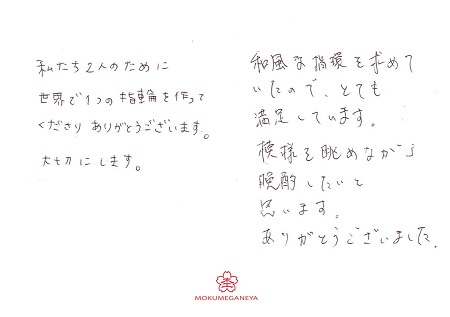 私たち2人のために
世界で1つの指輪を作って
くださり ありがとうございます。
大切にします。
和風な指環を求めて
いたので、とても
満足しています。
模様を眺めながら
晩酌したいと
思います。
ありがとうございました。
MOKUMEGANEYA